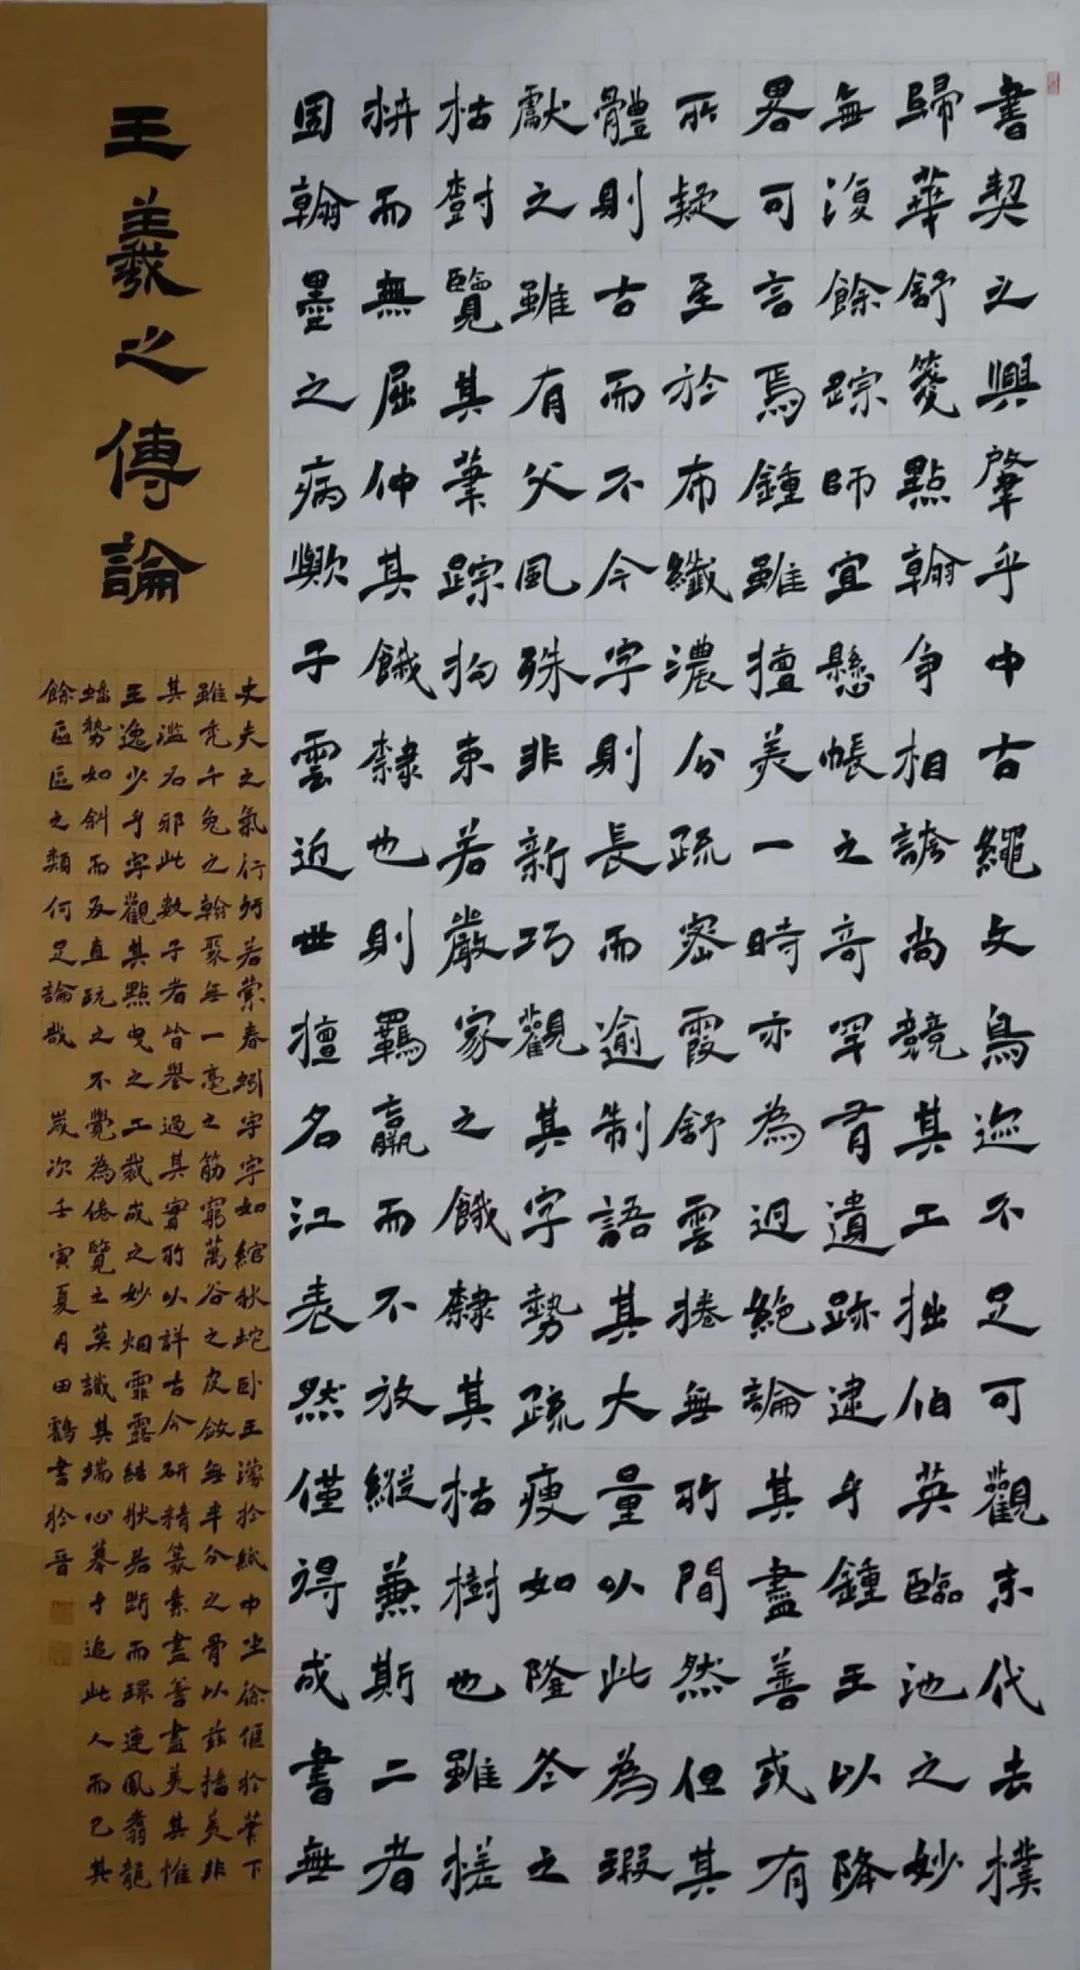 書契之興肇乎中古繩文鳥迹不足可觀末代去樸
歸華舒箋點翰争相誇尚競其工拙伯英臨池之妙
無復餘踪師宜懸帳之奇罕有遺跡逮乎鍾王以降
畧可言焉鍾雖擅美一時亦為迥絕論其盡善或有
所疑至於布纖濃分疏密霞舒雲捲無所間然但其
體則古而不今字則長而逾制語其大量以此為瑕
獻之雖有父風殊非新巧觀其字勢疏瘦如隆冬之
枯樹覽其筆踪拘束若嚴家之餓隸其枯樹也雖槎
枿而無屈伸其餓隸也則羈羸而不放縱兼斯二者
固翰墨之病歟子雲近世擅名江表然僅得成書無
王羲之傳論
丈夫之氣行行若縈春蚓字字如綰秋蛇卧王濛於紙中坐徐偃於筆下
雖禿千兔之翰聚無一毫之筋窮萬谷之皮斂無半分之骨以兹播美非
其濫名邪此數子者皆譽過其實所以詳古今研精篆素盡善盡美其惟
王逸少乎字觀其點曳之工裁成之妙烟霏露結狀若斷而環連鳳翥龍
蟠勢如斜而反直玩之不覺為倦覽之莫識其端心慕手追此人而已其
餘區區之類何足論哉 歲次壬寅夏月田鶴書於晉